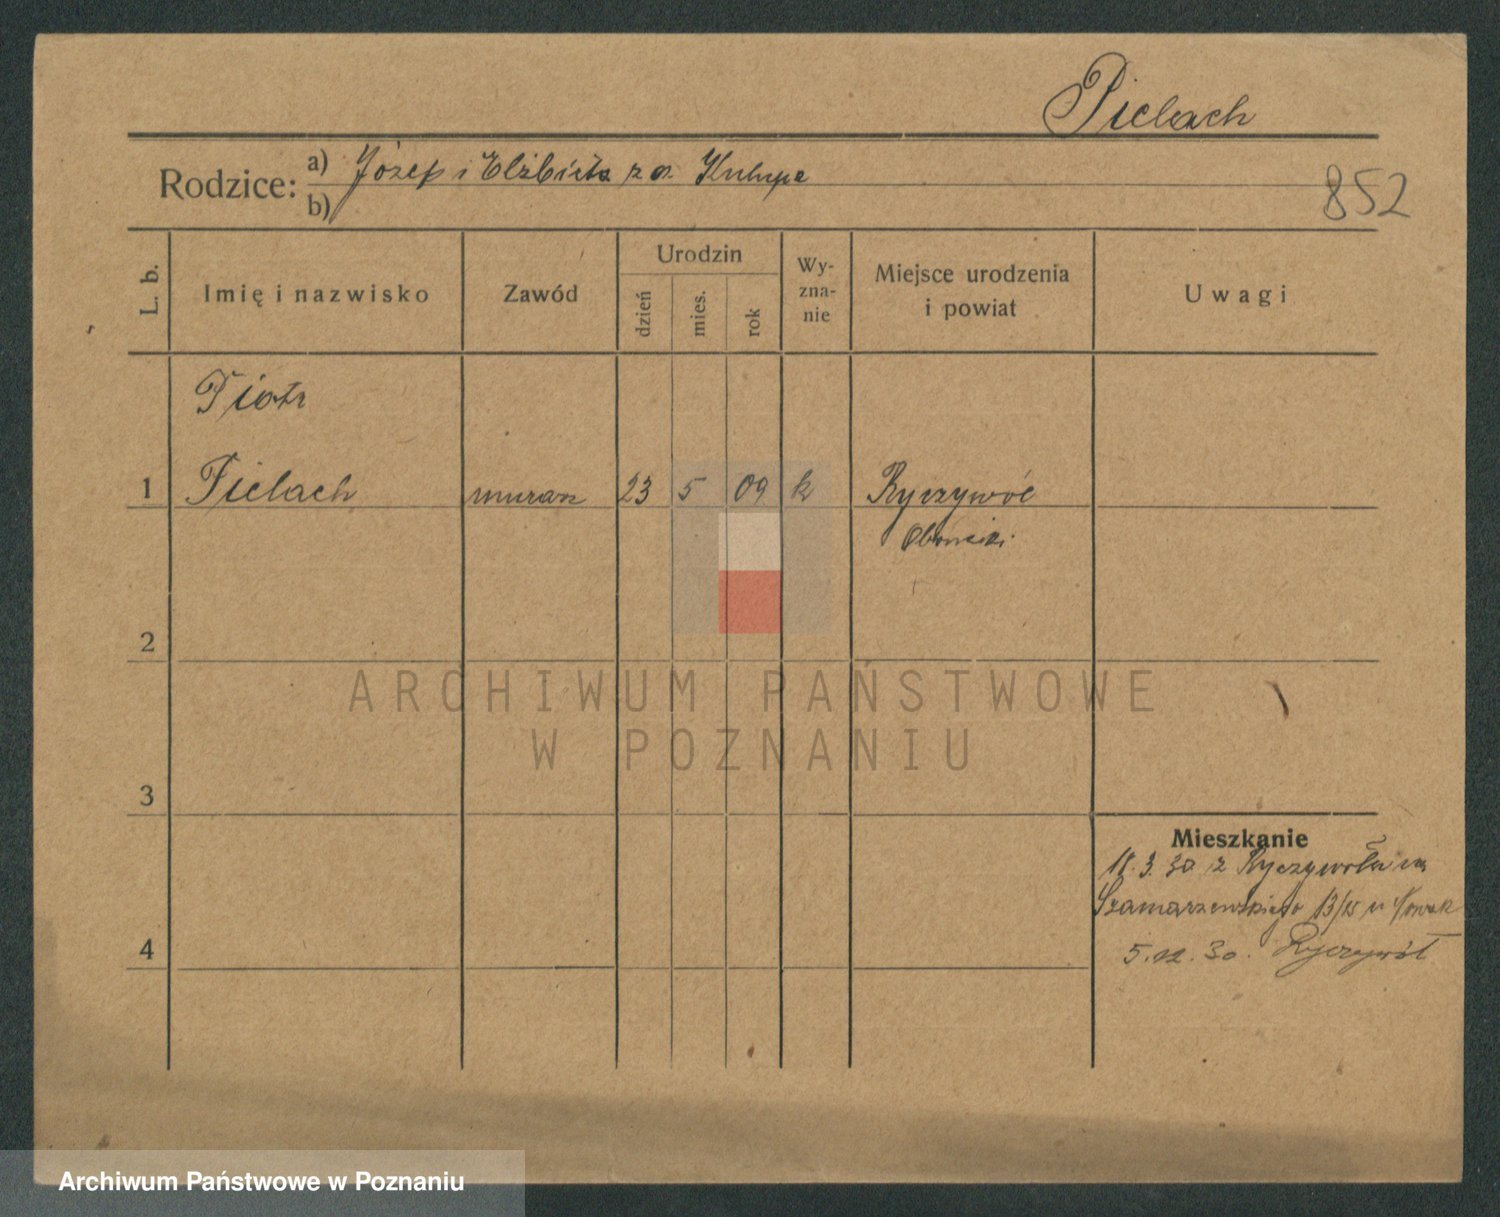 Pielach
Rodzice: a) Józef i Elżbieta z d.
b)
852
L. b.
Imię i nazwisko
Zawód
Urodzin
dzień
mies.
rok
Wy-
zna-
nie
Miejsce urodzenia
i powiat
Uwagi
Piotr
1 Pielach murarz 23 5 09 k Ryczywół
Oborniki
2
ARCHIWUM PAŃSTWOWE
W POZNANIU
3
Mieszkanie
18.3.30 z Ryczywoła na
Szamarzewskiego 13/15 u Nowak
4
5.12.30. Ryczywół
Archiwum Państwowe w Poznaniu